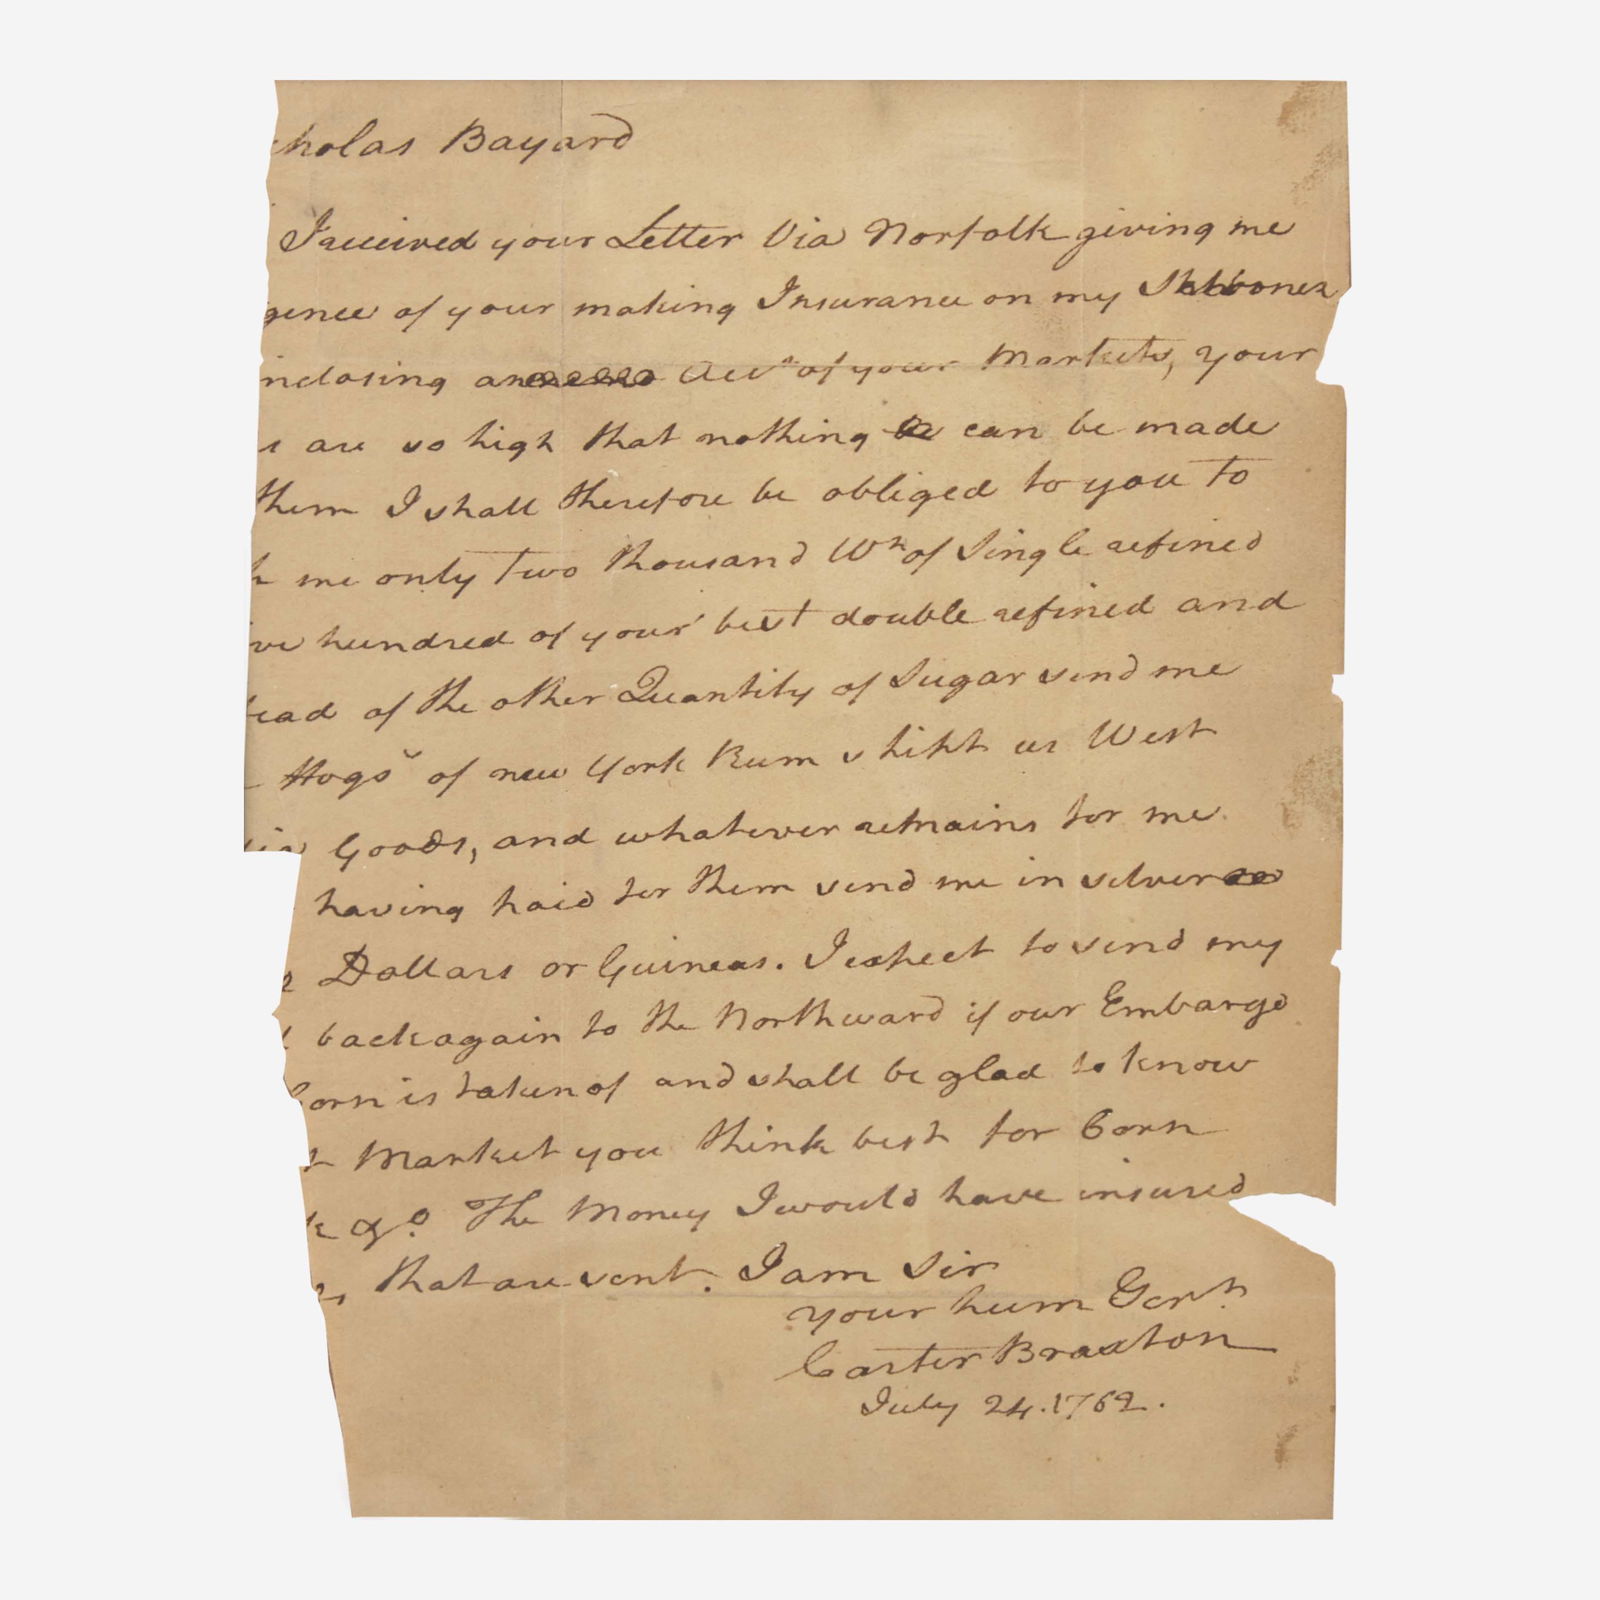 cholas Bayard
I received your Letter Via Norfolk giving me
gence of your making Insurance on my
nclosing an Acct of your Markets, your
s are so high that nothing can be made
them I shall therefore be obliged to you to
me only Two thousand Wt of Single refined
ve hundred of your best double refined and
tead of the other Quantity of Sugar send me
Hogs of new York Rum shipt as West
Goods, and whatever remains for me
having paid for them send me in silver
Dollars or Guineas. I expect to send my
back again to the Northward if our Embargo
Corn is taken of and shall be glad to know
t Market you think best for Corn
k &c. The Money I would have insured
that are sent. I am Sir
your hum Sert.
Carter Braxton
July 24. 1762.